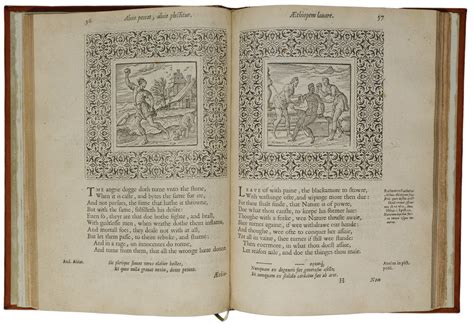 56
Alius peccat, alius plectitur.
THE angrie dogge doth turne vnto the stone,
When it is caste, and bytes the same for ire,
And not pursues, the same that hathe it throwne,
But with the same, fulfilleth his desire:
Euen so, they are that doe bothe fighte, and brall,
With guiltlesse men, when wrathe dothe them inflame,
And mortall foes, they deale not with at all,
But let them passe, to theire rebuke, and shame:
And in a rage, on innocentes do ronne,
And turne from them, that all the wronge haue donne.
And. Alciat.
Sic plerique sinunt veros elabier hostes,
Et quos nulla grauat noxia, dente petunt.
Æthio-
Æthiopem lauare.
57
LEAVE of with paine, the blackamore to skowre,
With washinge ofte, and wipinge more then due:
For thou shalt finde, that Nature is of powre,
Doe what thou canste, to keepe his former hue:
Thoughe with a forke, wee Nature thruste awaie,
Shee turnes againe, if wee withdrawe her hande:
And thoughe, wee ofte to conquer her assaie,
Yet all in vaine, shee turnes if still wee stande:
Then euermore, in what thou doest assaie,
Let reason rule, and doe the thinges thou maie.
Nunquam ex degeneri fiet generosus asello,
Et nunquam ex stolido cordatus fiet ab arte.
H
Non